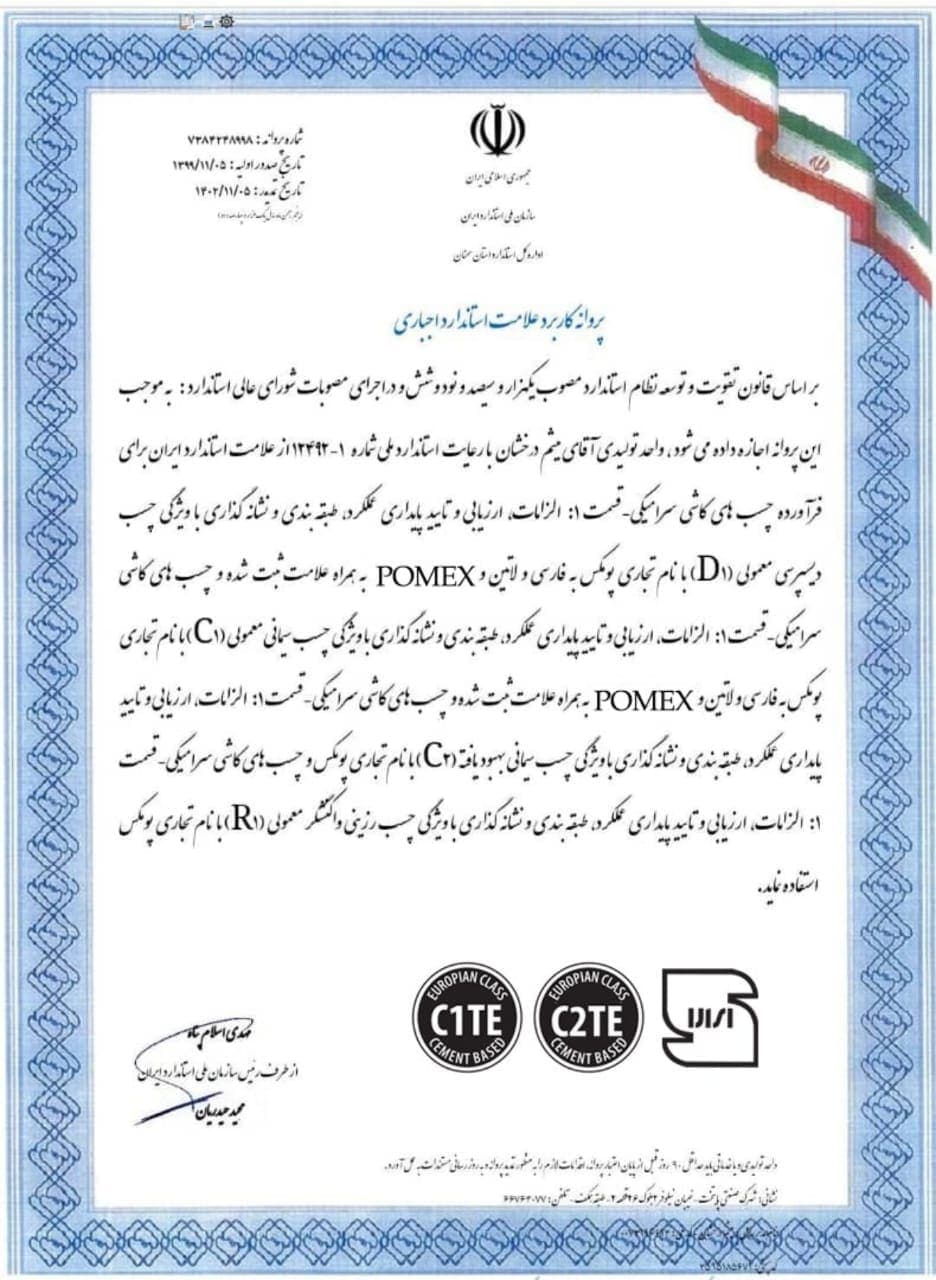 جمهوری اسلامی ایران
سازمان ملی استاندارد ایران
اداره کل استاندارد استان سمنان
شماره پروانه: ۷۳۸۴۲۴۸۹۹۸
تاریخ صدور اولیه: ۱۳۹۹/۱۱/۰۵
تاریخ تمدید: ۱۴۰۲/۱۱/۰۵
پروانه کاربرد علامت استاندارد اجباری
بر اساس قانون تقویت و توسعه نظام استاندارد مصوب یکهزار و سیصد و نود و شش و در اجرای مصوبات شورای عالی استاندارد: به موجب
این پروانه اجازه داده می شود، واحد تولیدی آقای میثم درخشان با رعایت استاندارد ملی شماره ۱-۱۲۴۹۲ از علامت استاندارد ایران برای
فرآورده چسب های کاشی سرامیکی-قسمت ۱: الزامات، ارزیابی و تایید پایداری عملکرد، طبقه بندی و نشانه گذاری با ویژگی چسب
دیسپرسی معمولی (D۱) با نام تجاری پومکس به فارسی و لاتین و POMEX به همراه علامت ثبت شده و چسب های کاشی
سرامیکی-قسمت ۱: الزامات، ارزیابی و تایید پایداری عملکرد، طبقه بندی و نشانه گذاری با ویژگی چسب سیمانی معمولی (C۱) با نام تجاری
پومکس به فارسی و لاتین و POMEX به همراه علامت ثبت شده و چسب های کاشی سرامیکی- قسمت ۱: الزامات، ارزیابی و تایید
پایداری عملکرد، طبقه بندی و نشانه گذاری با ویژگی چسب سیمانی بهبود یافته (C۲) با نام تجاری پومکس و چسب های کاشی سرامیکی-قسمت
۱: الزامات، ارزیابی و تایید پایداری عملکرد، طبقه بندی و نشانه گذاری با ویژگی چسب رزینی واکنشگر معمولی (R۱) با نام تجاری پومکس
استفاده نماید.
EUROPIAN CLASS
C1TE
CEMENT BASED
EUROPIAN CLASS
C2TE
CEMENT BASED
مهدی اسلام پناه
از طرف رئیس سازمان ملی استاندارد ایران
مجید حیدریان
واحد تولیدی و یا خدماتی باید حداقل ۹۰ روز قبل از پایان اعتبار پروانه، اقدامات لازم را به منظور تمدید پروانه و به روز رسانی مستندات به عمل آورد.
نشانی: شهرک صنعتی پایتخت - خیابان نیلوفر ۲ بلوک ۲۶ قطعه ۲، طبقه همکف - تلفن: